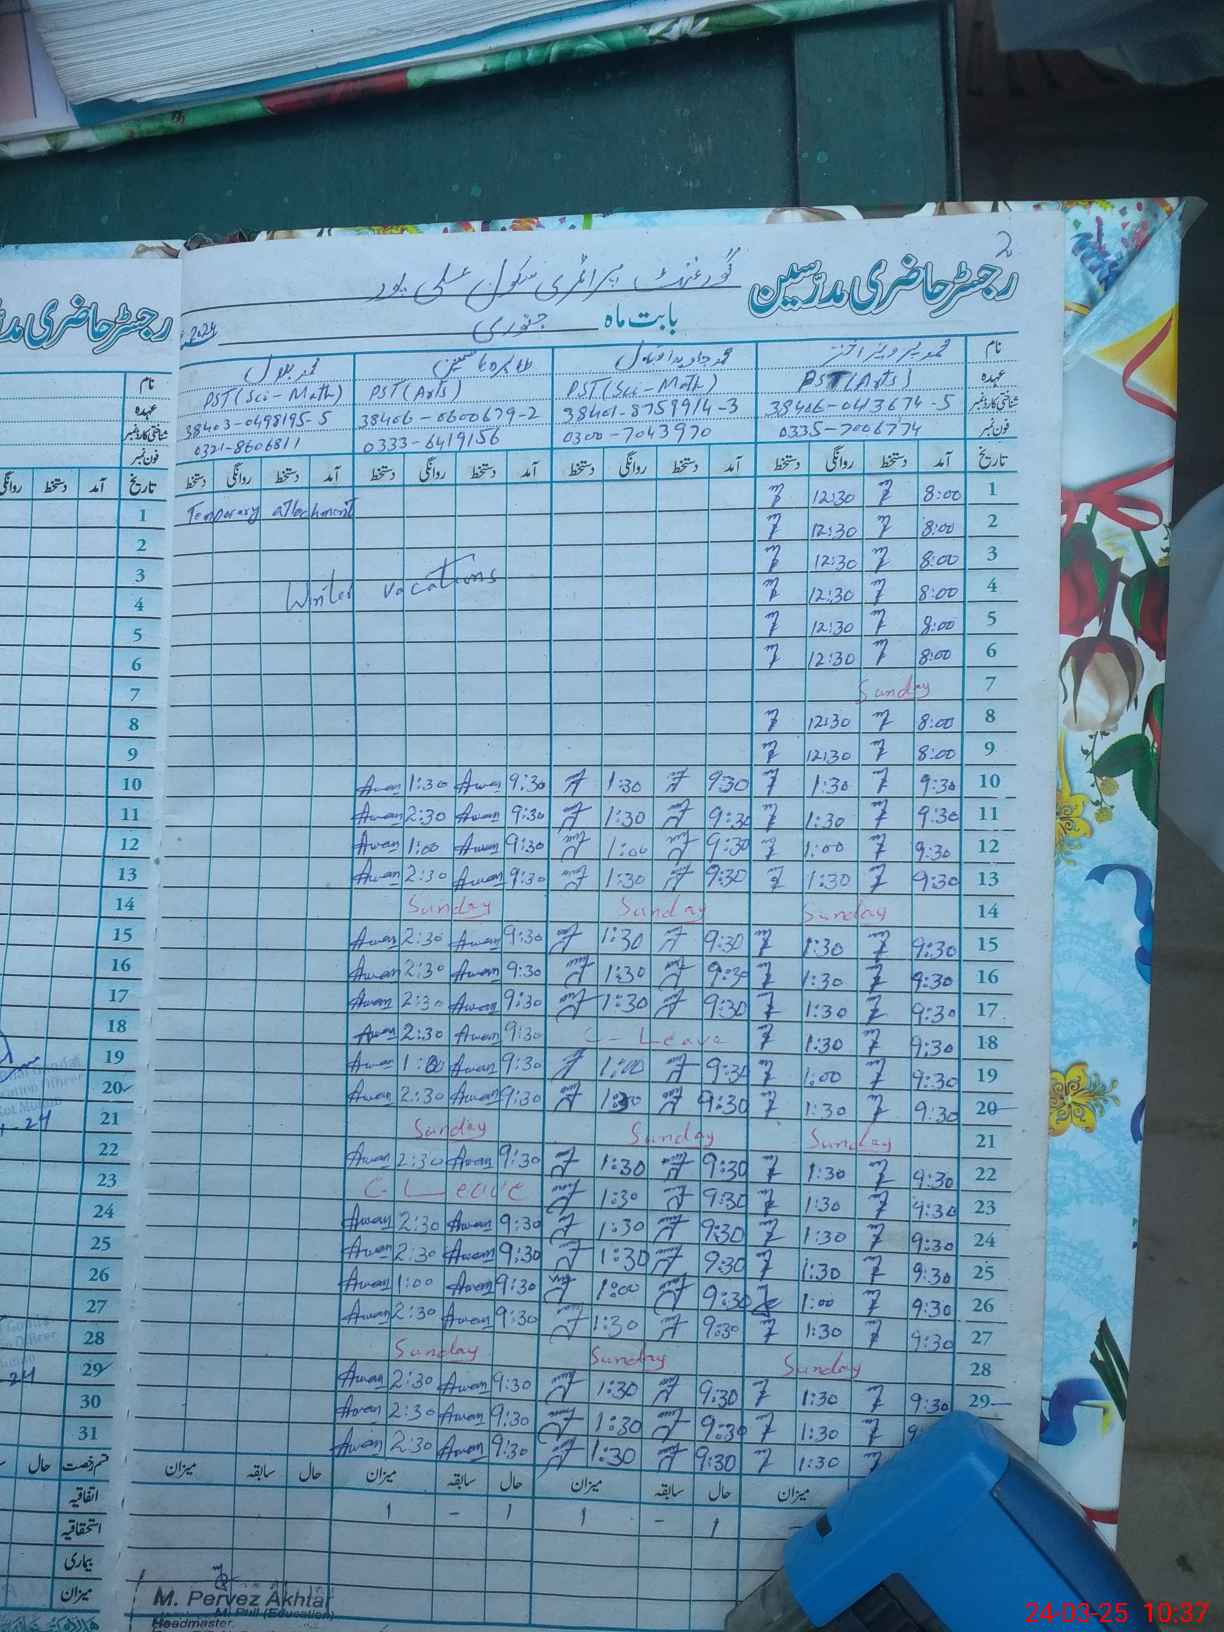 رجسٹر حاضری مدرسین
گورنمنٹ پرائمری سکول علی پور
بابت ماہ جنوری 2024
نام محمد پرویز اختر محمد جاوید اقبال محمد بلال
عہدہ PST (Arts) PST (Sci-Math) PST (Arts) PST (Sci-Math)
شناختی کارڈ نمبر 38406-0413674-5 38401-8759914-3 38406-0600679-2 38403-0498195-5
فون نمبر 0335-7006774 0300-7043970 0333-6419156 0321-8606811
تاریخ آمد دستخط روانگی دستخط آمد دستخط روانگی دستخط آمد دستخط روانگی دستخط آمد دستخط روانگی دستخط
1 8:00 12:30 Temporary attachment
2 8:00 12:30
3 8:00 12:30 Winter vacations
4 8:00 12:30
5 8:00 12:30
6 8:00 12:30
7 Sunday
8 8:00 12:30
9 8:00 12:30
10 9:30 1:30 9:30 1:30 9:30 Awan 1:30 Awan
11 9:30 1:30 9:30 1:30 9:30 Awan 2:30 Awan
12 9:30 1:00 9:30 1:00 9:30 Awan 1:00 Awan
13 9:30 1:30 9:30 1:30 9:30 Awan 2:30 Awan
14 Sunday Sunday Sunday
15 9:30 1:30 9:30 1:30 9:30 Awan 2:30 Awan
16 9:30 1:30 9:30 1:30 9:30 Awan 2:30 Awan
17 9:30 1:30 9:30 1:30 9:30 Awan 2:30 Awan
18 9:30 1:30 C-Leave 9:30 Awan 2:30 Awan
19 9:30 1:00 9:30 1:00 9:30 Awan 1:00 Awan
20 9:30 1:30 9:30 1:30 9:30 Awan 2:30 Awan
21 Sunday Sunday Sunday
22 9:30 1:30 9:30 1:30 9:30 Awan 2:30 Awan
23 9:30 1:30 9:30 1:30 C-Leave
24 9:30 1:30 9:30 1:30 9:30 Awan 2:30 Awan
25 9:30 1:30 9:30 1:30 9:30 Awan 2:30 Awan
26 9:30 1:00 9:30 1:00 9:30 Awan 1:00 Awan
27 9:30 1:30 9:30 1:30 9:30 Awan 2:30 Awan
28 Sunday Sunday Sunday
29 9:30 1:30 9:30 1:30 9:30 Awan 2:30 Awan
1:30 9:30 1:30 9:30 Awan 2:30 Awan
1:30 9:30 1:30 9:30 Awan 2:30 Awan
میزان حال سابقہ میزان حال سابقہ میزان حال سابقہ میزان
1 - 1 1 - 1
M. Pervez Akhtar
M. Phil (Education)
Headmaster
رجسٹر حاضری
نام
عہدہ
شناختی کارڈ نمبر
فون نمبر
تاریخ آمد دستخط روانگی
1
2
3
4
5
6
7
8
9
10
11
12
13
14
15
16
17
18
19
20
21
22
23
24
25
26
27
28
29
30
31
قسم رخصت حال
اتفاقیہ
استحقاقیہ
بیماری
میزان
24-03-25 10:37